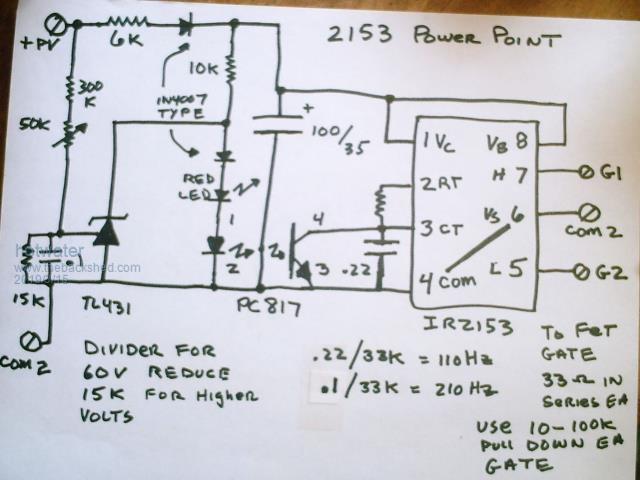 2153 Power Point
+PV
6K
10K
300
K
50K
1N4007
TYPE
+
100/35
RED
LED
1
2
4
3
.22
1 VC
VB 8
2 RT
H 7
G1
3 CT
VS 6
COM 2
4 COM
L 5
G2
IR2153
hotwater
www.thebackshed.com
.1
15K
TL431
PC817
COM 2
DIVIDER FOR
60V REDUCE
15K FOR HigHer
VOLTS
.22/33K = 110Hz
.1/33K = 210Hz
To FET
GATE
33Ω IN
Series EA
USE 10-100K
PULL DOWN EA
GATE